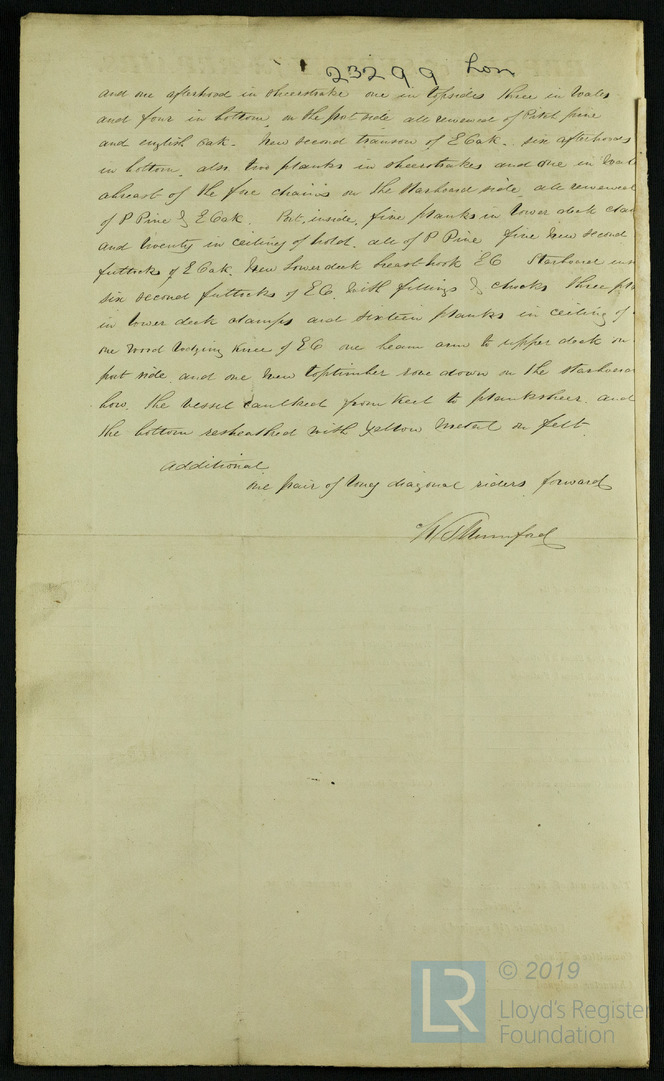 23299 Lon
and one afterhood in sheerstrake one in topsides three in wales
and four in bottom on the port side all renewed of Pitch pine
and english oak. New second transom of E Oak. six afterhoods
in bottom. also two planks in sheerstrakes and one in wales
abreast of the fore chains on the starboard side all renewed
of P Pine & E Oak. Port inside. five planks in lower deck clam
and twenty in ceiling of hold. all of P Pine five new second
futtocks of E Oak. New Lower deck breasthook EO Starboard ins
six second futtocks of EO. with fillings & chocks three pla
in lower deck clamps and sixteen planks in ceiling of
one wood lodging knee of EO one beam arm to upper deck on
port side. and one new toptimber rove down on the starboar
bow. the vessel caulked from keel to planksheer. and
the bottom resheathed with yellow metal on felt.
Additional
one pair of long diagonal riders forward
Mumford
© 2019
LR
Lloyd's Register
Foundation